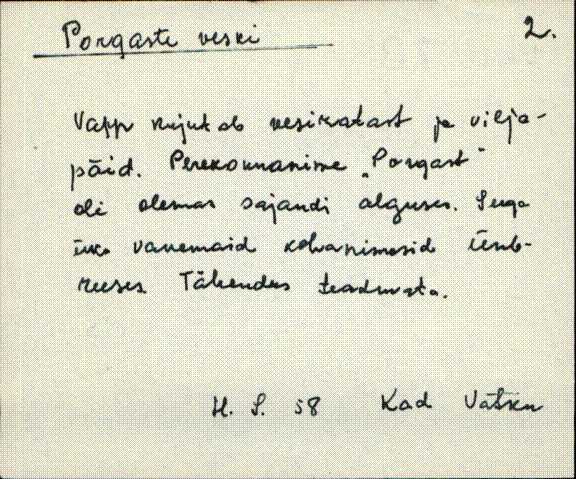 Porgaste veski 2.
Vapp kujutab vesiratast ja vilja-
päid. Perekonnanime "Porgast"
oli olemas sajandi alguses. Seega
üks vanemaid kohanimesid Ümb-
ruses. Tähendus teadmata.
H. S. 58 Kad Vatsku